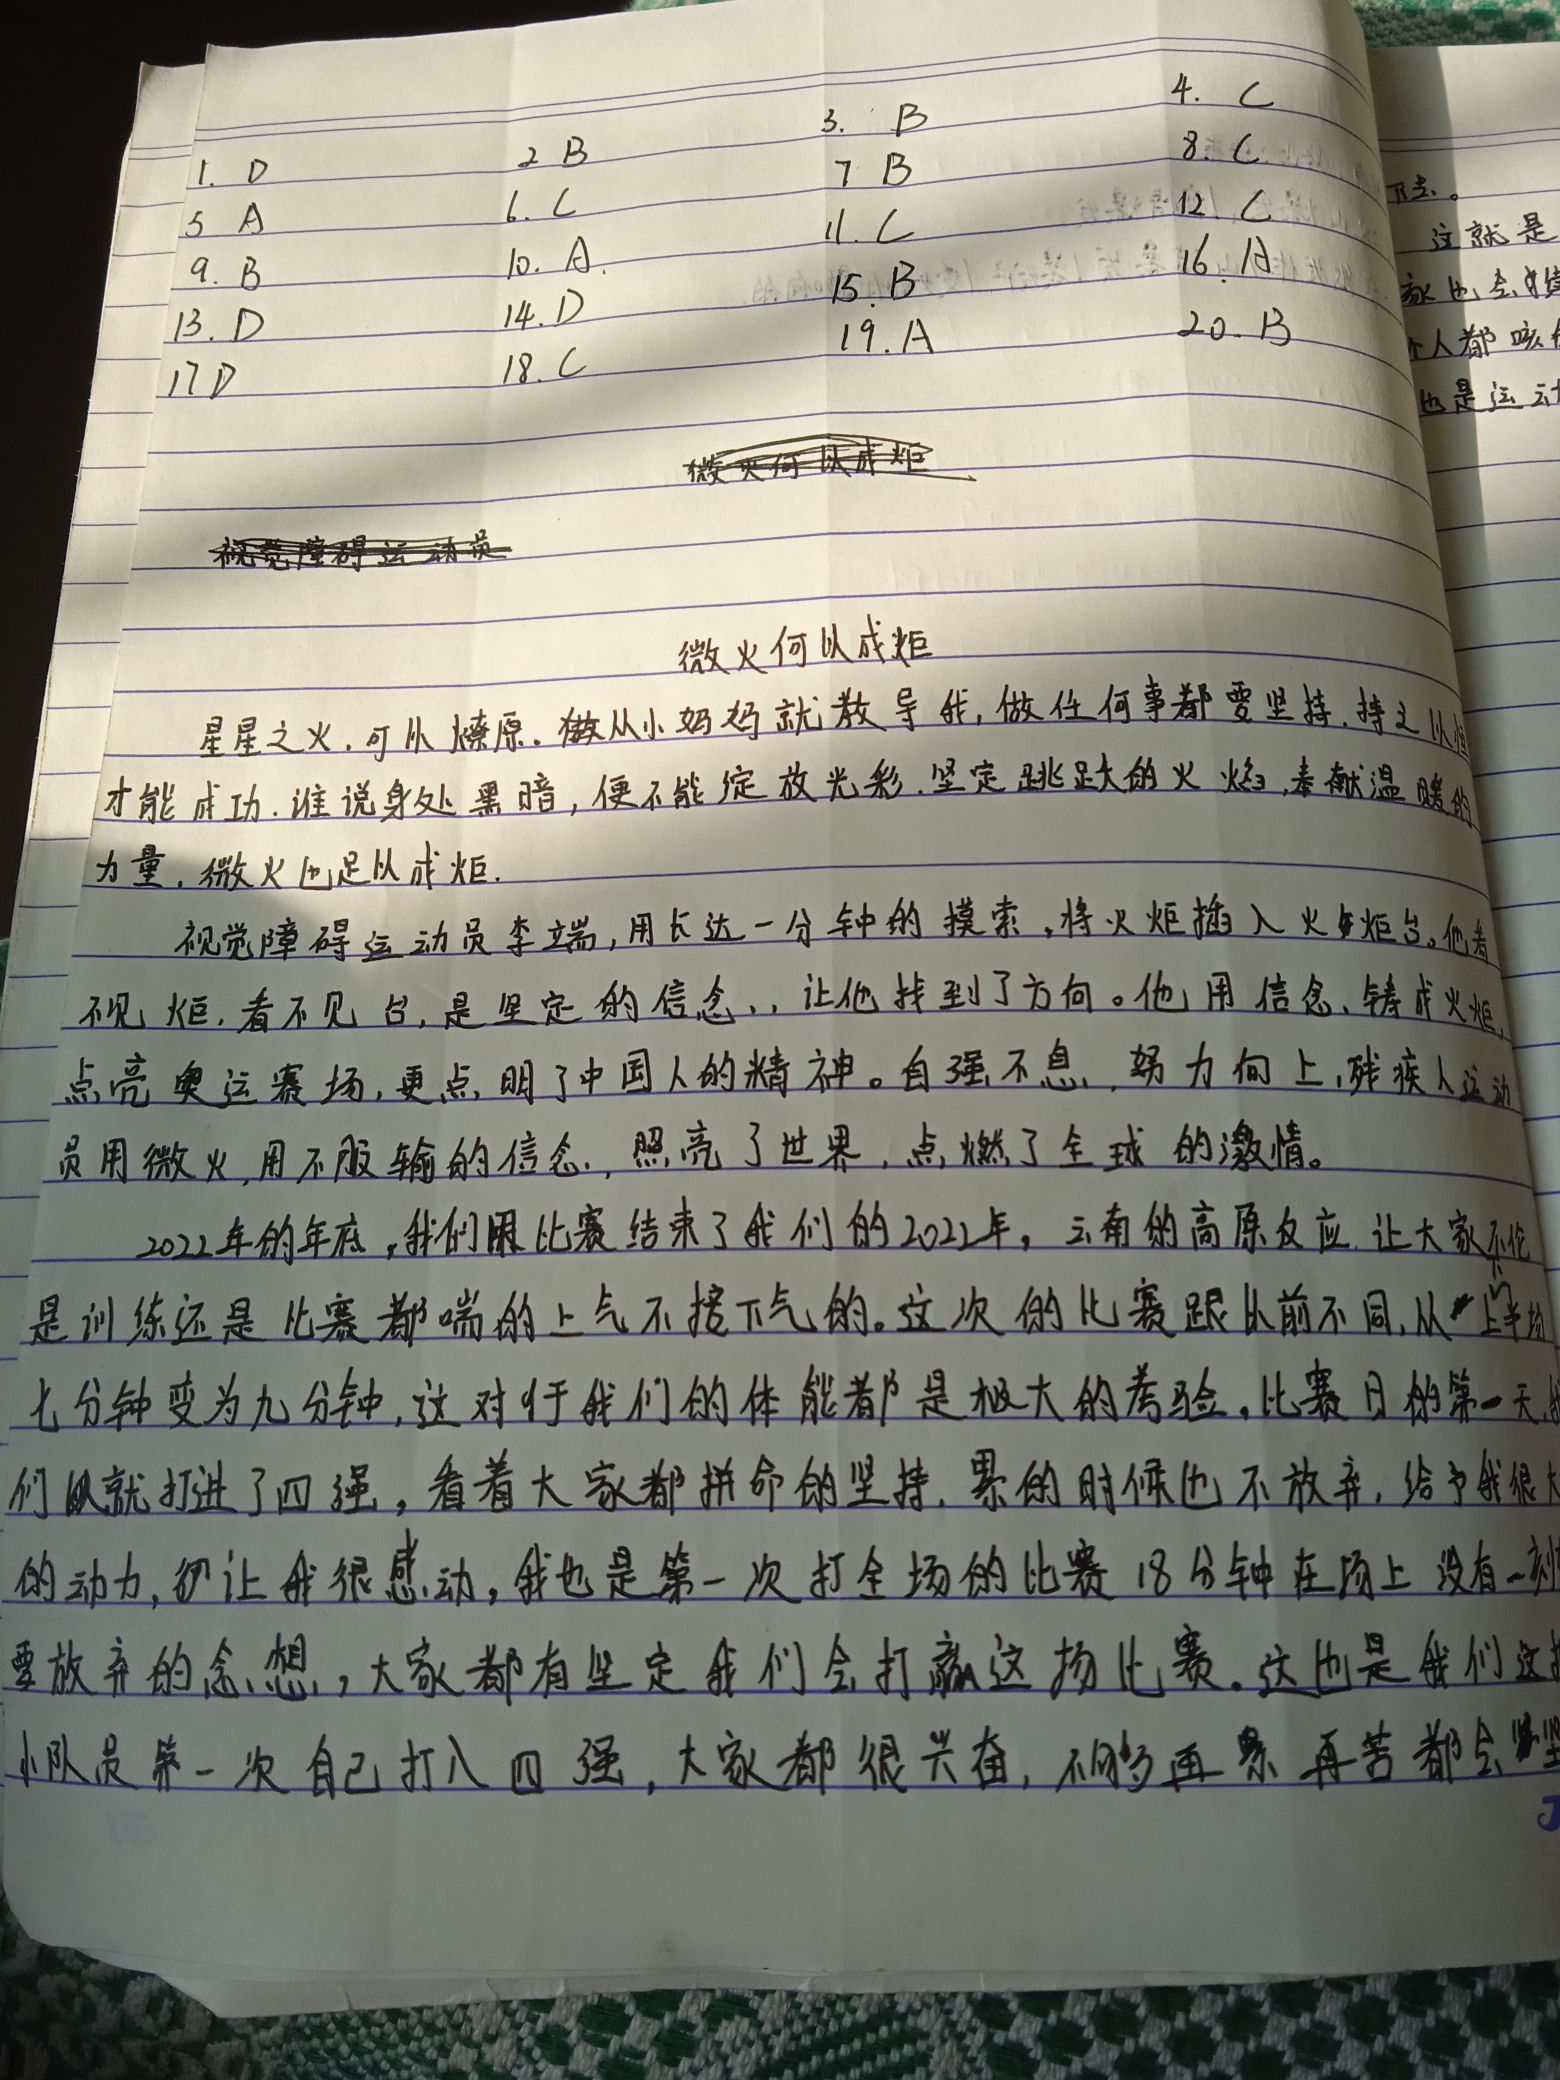 1. D 2 B 3. B 4. C
5 A 6. C 7 B 8. C
9. B 10. A. 11. C 12. C
13. D 14. D 15. B 16. A
17 D 18. C 19. A 20. B
微火何以成炬
视觉障碍运动员
微火何以成炬
星星之火，可以燎原。从小妈妈就教导我，做任何事都要坚持，持之以恒
才能成功。谁说身处黑暗，便不能绽放光彩，坚定跳跃的火焰，奉献温暖的
力量，微火也足以成炬。
视觉障碍运动员李端，用长达一分钟的摸索，将火炬插入火炬台。他看
不见炬，看不见台，是坚定的信念，让他找到了方向。他用信念，铸成火炬，
点亮奥运赛场，更点明了中国人的精神。自强不息，努力向上，残疾人运动
员用微火，用不服输的信念，照亮了世界，点燃了全球的激情。
2022年的年底，我们用比赛结束了我们的2022年，云南的高原反应让大家不论
是训练还是比赛都喘的上气不接下气的。这次的比赛跟以前不同，从上半场
七分钟变为九分钟，这对于我们的体能都是极大的考验，比赛日的第一天，我
们就打进了四强，看着大家都拼命的坚持，累的时候也不放弃，给予我很大
的动力，让我很感动，我也是第一次打全场的比赛18分钟在场上没有一刻
要放弃的念想，大家都有坚定我们会打赢这场比赛。这也是我们这
小队员第一次自己打入四强，大家都很兴奋，不管再累再苦都会坚
下去。
这就是
家也会
个人都
也是运动